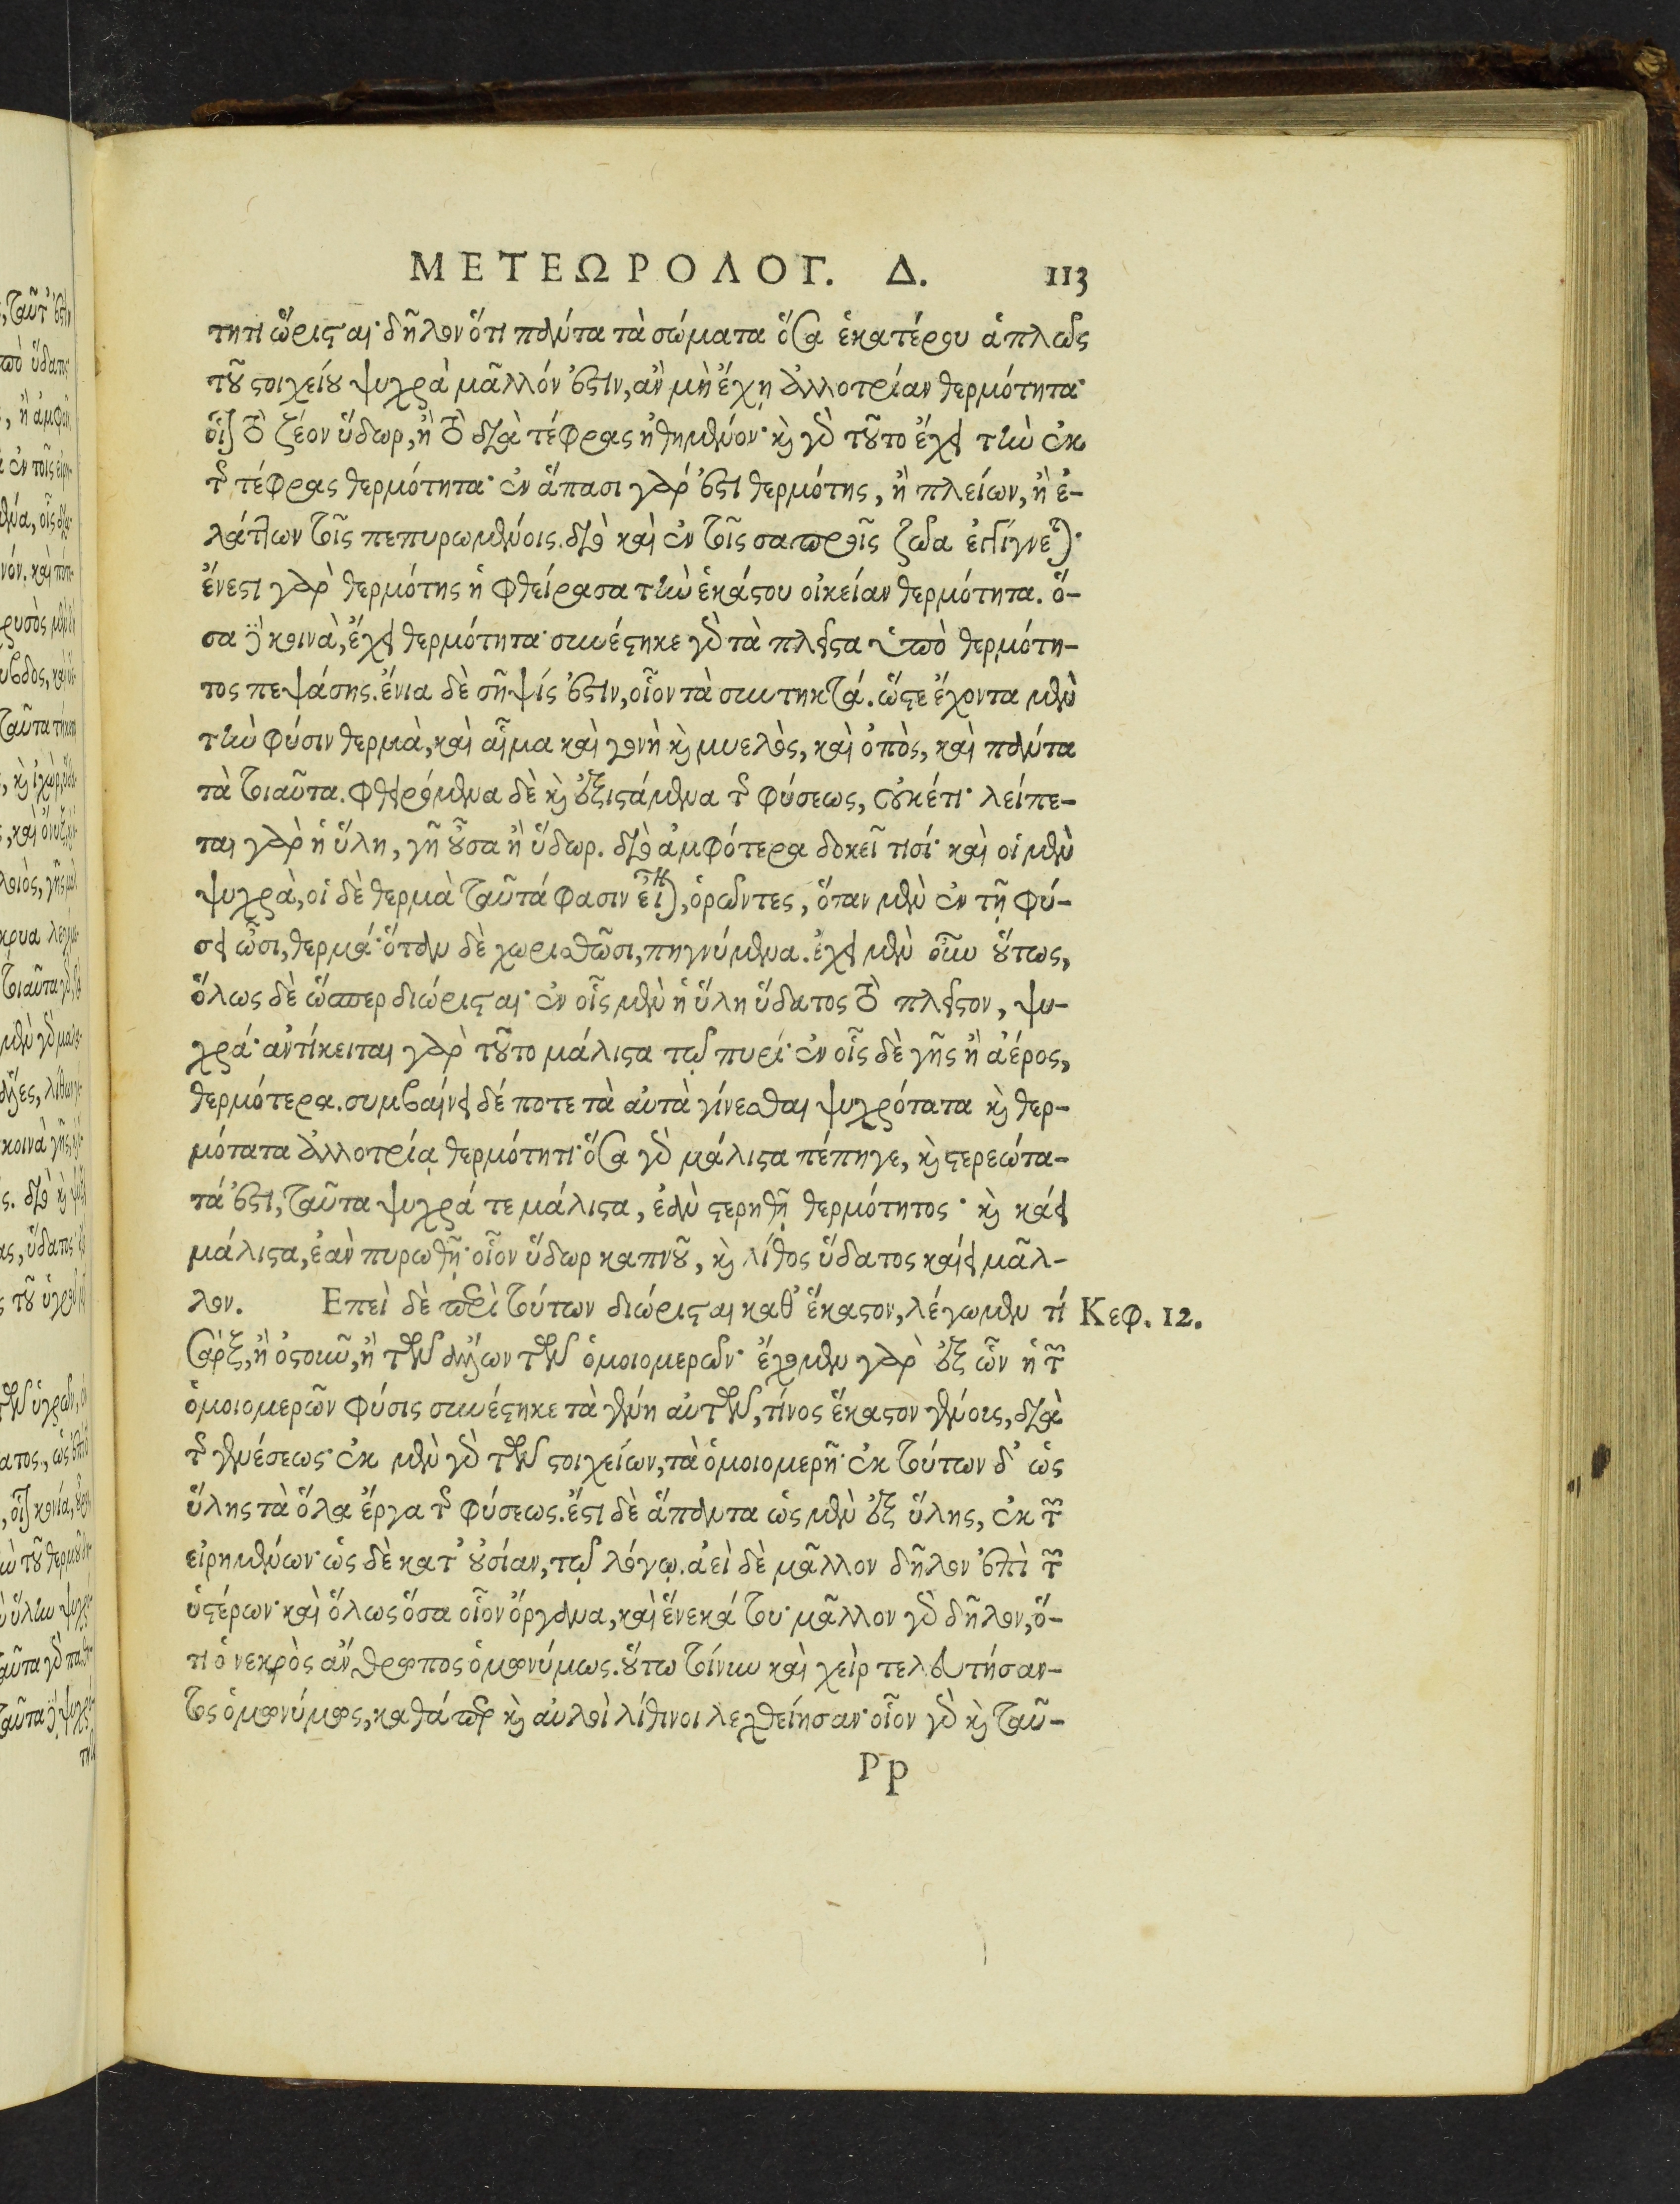 ΜΕΤΕΩΡΟΛΟΓ. Δ. 113
τητι ὥρισται· δῆλον ὅτι πάντα τὰ σώματα ὅσα ἑκατέρου ἁπλῶς
τοῦ στοιχείου ψυχρὰ μᾶλλόν ἐστιν, ἂν μὴ ἔχῃ ἀλλοτρίαν θερμότητα·
οἷον τὸ ζέον ὕδωρ, ἢ τὸ διὰ τέφρας ἠθημένον· καὶ γὰρ τοῦτο ἔχει τὴν ἐκ
τῆς τέφρας θερμότητα· ἐν ἅπασι γάρ ἐστι θερμότης, ἢ πλείων, ἢ ἐ-
λάττων τοῖς πεπυρωμένοις. διὸ καὶ ἐν τοῖς σαπροῖς ζῶα ἐγγίγνεται·
ἔνεστι γὰρ θερμότης ἡ φθείρασα τὴν ἑκάστου οἰκείαν θερμότητα. ὅ-
σα δὲ κοινὰ, ἔχει θερμότητα· συνέστηκε γὰρ τὰ πλεῖστα ὑπὸ θερμότη-
τος πεψάσης. ἔνια δὲ σῆψίς ἐστιν, οἷον τὰ συντηκτά. ὥστε ἔχοντα μὲν
τὴν φύσιν θερμὰ, καὶ αἷμα καὶ γονὴ καὶ μυελὸς, καὶ ὀπὸς, καὶ πάντα
τὰ τοιαῦτα. φθειρόμενα δὲ καὶ ἐξιστάμενα τῆς φύσεως, οὐκέτι· λείπε-
ται γὰρ ἡ ὕλη, γῆ οὖσα ἢ ὕδωρ. διὸ ἀμφότερα δοκεῖ τισί· καὶ οἱ μὲν
ψυχρὰ, οἱ δὲ θερμὰ ταῦτά φασιν εἶναι, ὁρῶντες, ὅταν μὲν ἐν τῇ φύ-
σει ὦσι, θερμά· ὅταν δὲ χωρισθῶσι, πηγνύμενα. ἔχει μὲν οὖν οὕτως,
ὅλως δὲ ὥσπερ διώρισται· ἐν οἷς μὲν ἡ ὕλη ὕδατος τὸ πλεῖστον, ψυ-
χρά· ἀντίκειται γὰρ τοῦτο μάλιστα τῷ πυρί· ἐν οἷς δὲ γῆς ἢ ἀέρος,
θερμότερα. συμβαίνει δέ ποτε τὰ αὐτὰ γίνεσθαι ψυχρότατα καὶ θερ-
μότατα ἀλλοτρίᾳ θερμότητι· ὅσα γὰρ μάλιστα πέπηγε, καὶ στερεώτα-
τά ἐστι, ταῦτα ψυχρά τε μάλιστα, ἐὰν στερηθῇ θερμότητος· καὶ κάει
μάλιστα, ἐὰν πυρωθῇ· οἷον ὕδωρ καπνοῦ, καὶ λίθος ὕδατος καίει μᾶλ-
λον. Επεὶ δὲ περὶ τούτων διώρισται καθ' ἕκαστον, λέγωμεν τί Κεφ. 12.
σὰρξ, ἢ ὀστοῦν, ἢ τῶν ἄλλων τῶν ὁμοιομερῶν· ἔχομεν γὰρ ἐξ ὧν ἡ τῶν
ὁμοιομερῶν φύσις συνέστηκε τὰ γένη αὐτῶν, τίνος ἕκαστον γένους, διὰ
τῆς γενέσεως· ἐκ μὲν γὰρ τῶν στοιχείων, τὰ ὁμοιομερῆ· ἐκ τούτων δ' ὡς
ὕλης τὰ ὅλα ἔργα τῆς φύσεως. ἔστι δὲ ἅπαντα ὡς μὲν ἐξ ὕλης, ἐκ τῶν
εἰρημένων· ὡς δὲ κατ' οὐσίαν, τῷ λόγῳ. ἀεὶ δὲ μᾶλλον δῆλον ἐπὶ τῶν
ὑστέρων· καὶ ὅλως ὅσα οἷον ὄργανα, καὶ ἕνεκά του· μᾶλλον γὰρ δῆλον, ὅ-
τι ὁ νεκρὸς ἄνθρωπος ὁμωνύμως. οὕτω τοίνυν καὶ χεὶρ τελευτήσαν-
τος ὁμωνύμως, καθάπερ καὶ αὐλοὶ λίθινοι λεχθείησαν· οἷον γὰρ καὶ ταῦ-
Pp